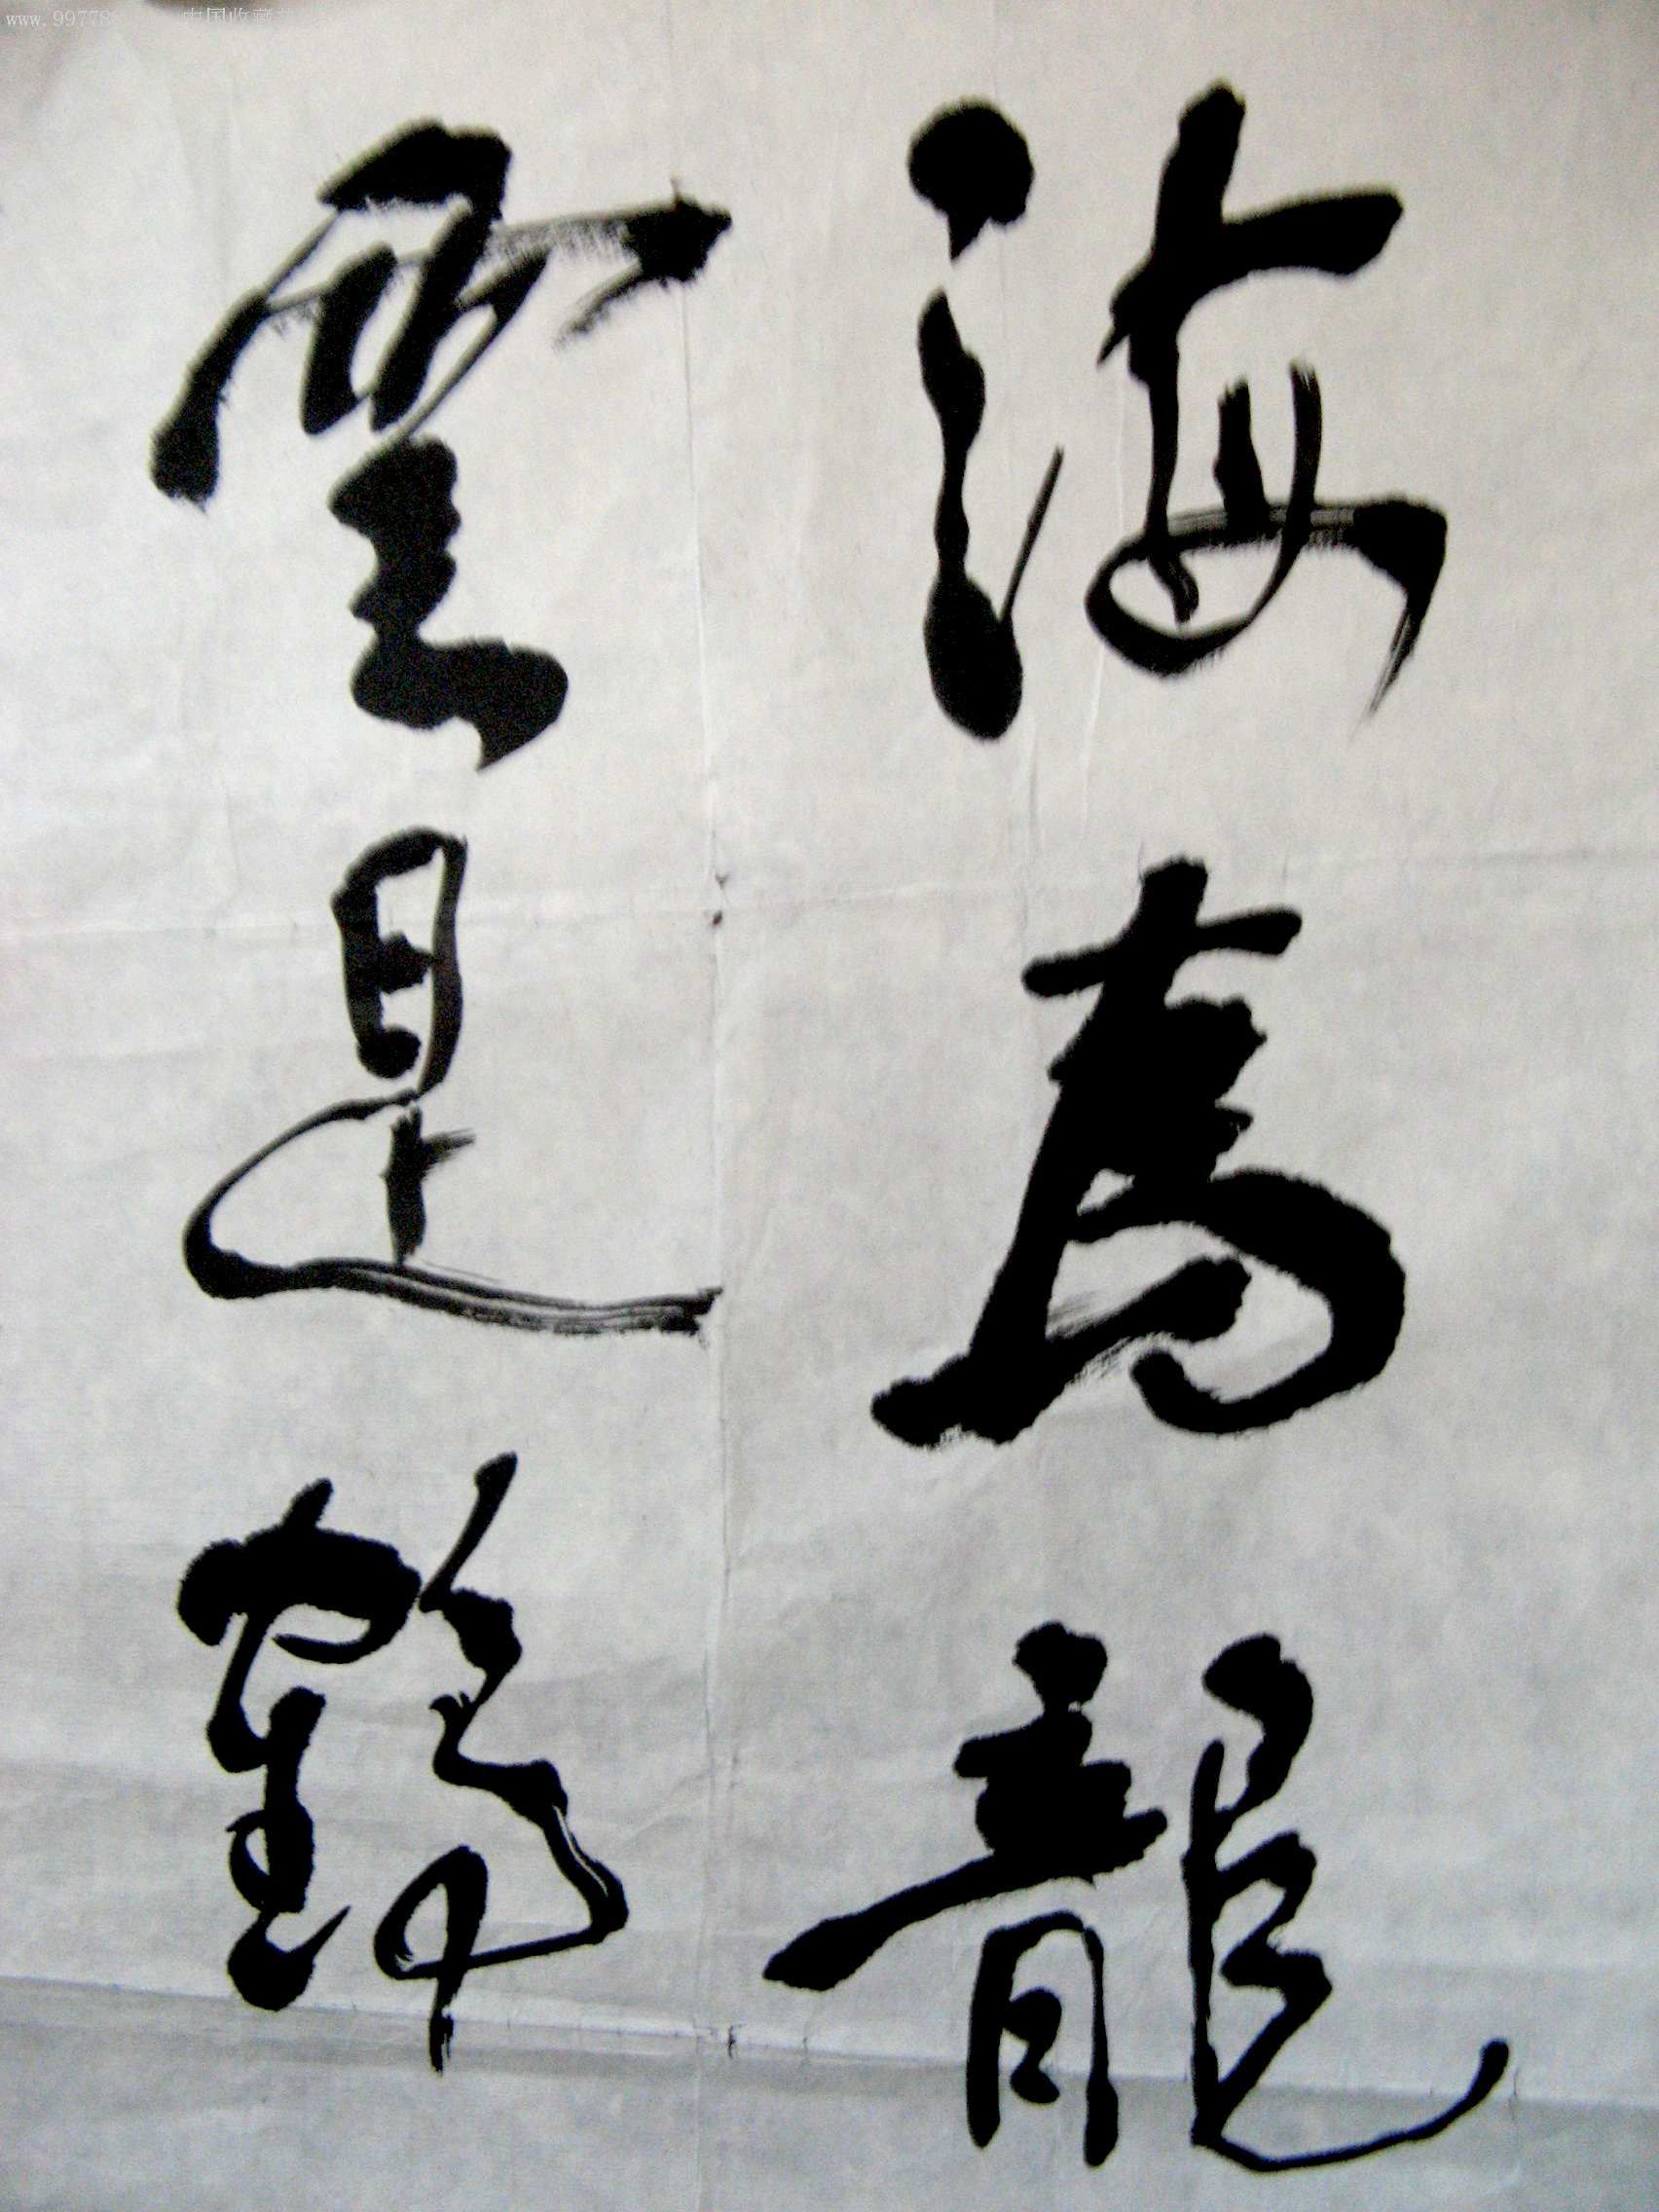 www.99778 中国收藏
海為龍
雲是鶴